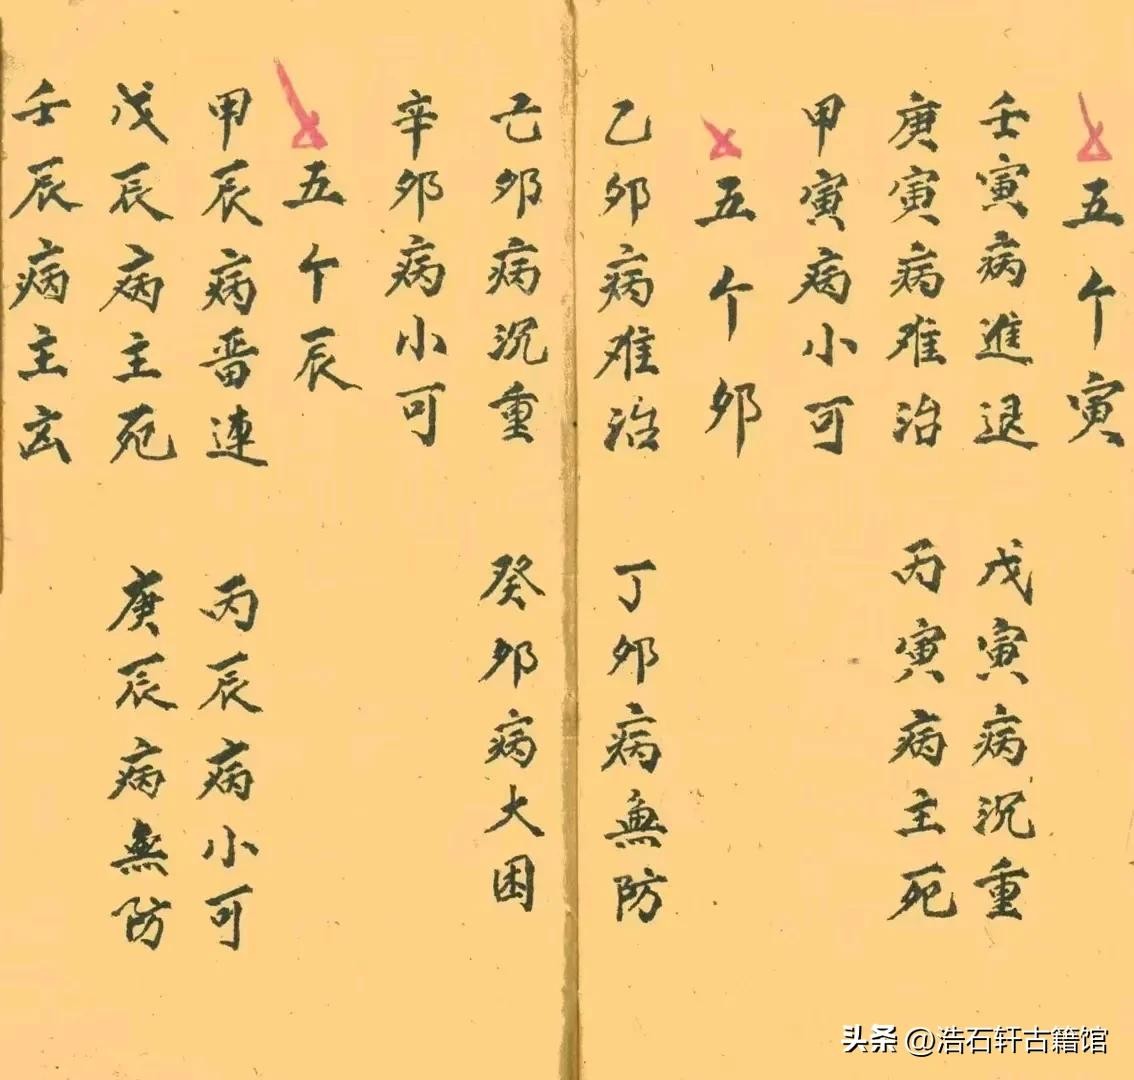 五个寅
壬寅病進退 戊寅病沉重
庚寅病难治 丙寅病主死
甲寅病小可
五个夘
乙夘病难治 丁夘病無防
己夘病沉重 癸夘病大困
辛夘病小可
五个辰
甲辰病畨連 丙辰病小可
戊辰病主死 庚辰病無防
壬辰病主凶
头条 @浩石轩古籍馆